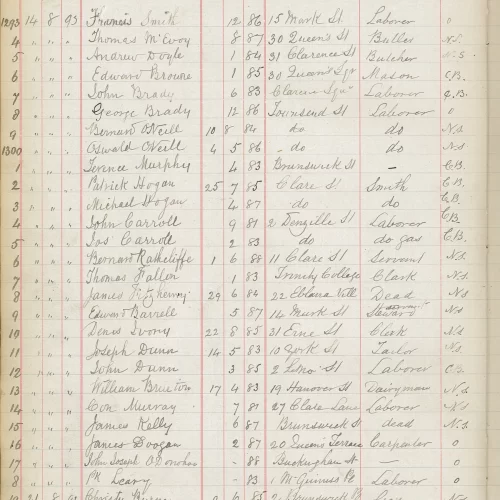 1293 14 8 93 Francis Smith 12 86 15 Mark St Laborer o
4 " " " Thomas McEvoy 8 87 30 Queen's St Butler N.S.
5 " " " Andrew Doyle 1 84 31 Clarence St Butcher N.S.
6 " " " Edward Browne 1 85 30 Queen's Sqr Mason C.B.
7 " " " John Brady 6 83 Clarence Laborer C.B.
8 " " " George Brady 12 86 Townsend St Laborer o
9 " " " Bernard O'Neill 10 8 84 do do N.S.
1300 " " " Oswald O'Neill 4 5 86 do do N.S.
1 " " " Terence Murphy 4 83 Brunswick St — C.B.
2 " " " Patrick Hogan 25 7 85 Clare St Smith C.B.
3 " " " Michael Hogan 4 87 do do C.B.
4 " " " John Carroll 9 81 2 Denzille St Laborer C.B.
5 " " " Jos' Carroll 2 83 do do gas C.B.
6 " " " Bernard Rathcliffe 1 6 88 11 Clare St Servant N.S.
7 " " " Thomas Fallen 1 83 Trinity College Clark N.S.
8 " " " James Fitzhenry 29 6 84 22 Eblana Vill Dead N.S.
9 " " " Edward Barrell 5 87 14 Mark St Steward N.S.
10 " " " Denis Ivory 22 8 85 31 Erne St Clerk N.S.
11 " " " Joseph Dunn 14 5 83 10 York St Tailor N.S.
12 " " " John Dunn 3 85 2 St Laborer C.B.
13 " " " William Bruton 17 4 83 19 Hanover St Dairyman N.S.
14 " " " Con Murray 7 81 27 Clare Lane Laborer N.S.
15 " " " James Kelly 6 87 Brunswick St dead N.S.
16 " " " James Doogan 2 87 20 Queen's Terrace Carpenter o
17 " " " John Joseph O'Donohoe - 88 Buckingham St — o
18 " " " Pk Leary - 83 1 McGuiness Pl Laborer o